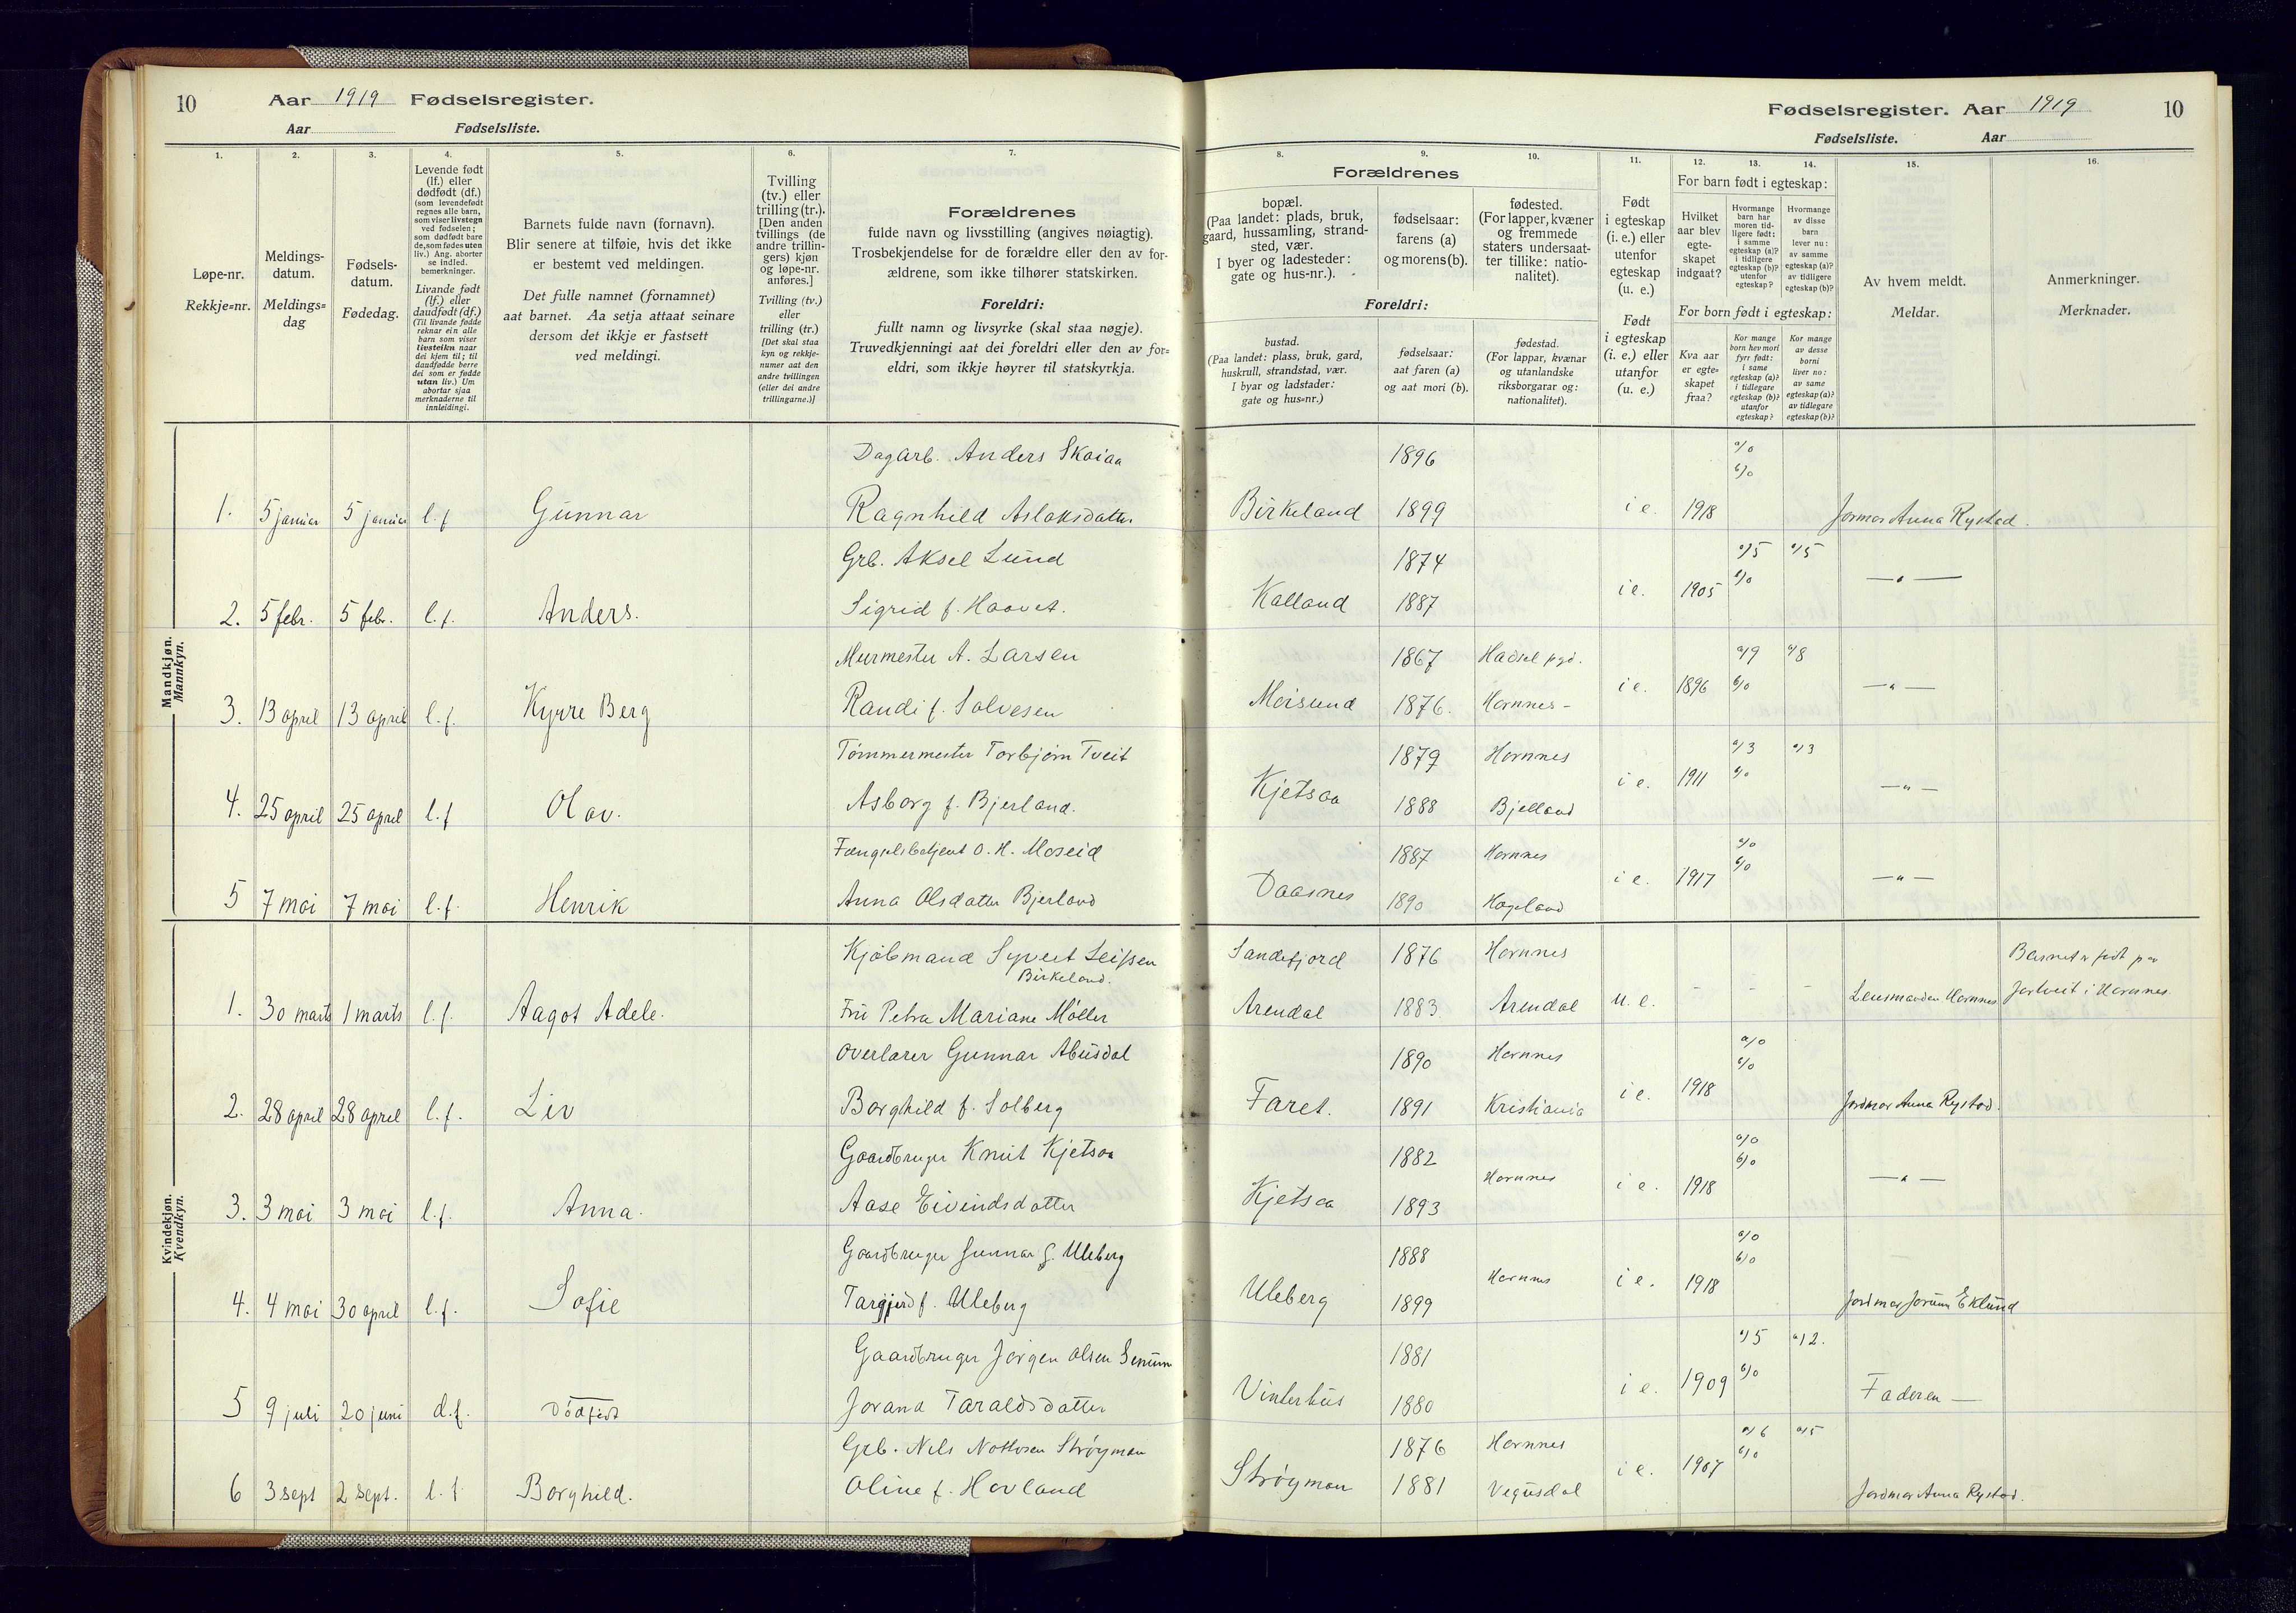 10 Aar 1919 Fødselsregister.
Aar Fødselsliste.
Fødselsregister. Aar 1919 10
Fødselsliste. Aar
1.
Løpe-nr.
Rekkje=nr.
2.
Meldings-
datum.
Meldings=
dag
3.
Fødsels-
datum.
Fødedag.
4.
Levende født
(lf.) eller
dødfødt (df.)
(som levendefødt
regnes alle barn,
som viser livstegn
ved fødselen;
som dødfødt bare
de, som fødes uten
liv.) Ang. aborter
se indled.
bemerkninger.
Livande født
(lf.) eller
daudfødt (df.)
(Til livande fødde
reknar ein alle
barn som viser
livsteikn naar
dei kjem til; til
daudfødde berre
dei som er fødde
utan liv.) Um
abortar sjaa
merknaderne til
innleidingi.
5.
Barnets fulde navn (fornavn).
Blir senere at tilføie, hvis det ikke
er bestemt ved meldingen.
Det fulle namnet (fornamnet)
aat barnet. Aa setja attaat seinare
dersom det ikkje er fastsett
ved meldingi.
6.
Tvilling
(tv.) eller
trilling (tr.).
[Den anden
tvillings (de
andre trillin-
gers) kjøn
og løpe-nr.
anføres.]
Tvilling (tv.)
eller
trilling (tr.)
[Det skal staa
kyn og rekkje-
numer aat den
andre tvillingen
(eller dei andre
trillingarne.)]
7.
Forældrenes
fulde navn og livsstilling (angives nøiagtig).
Trosbekjendelse for de forældre eller den av for-
ældrene, som ikke tilhører statskirken.
Foreldri:
fullt namn og livsyrke (skal staa nøgje).
Truvedkjenningi aat dei foreldri eller den av for=
eldri, som ikkje høyrer til statskyrkja.
8. 9. 10.
Forældrenes
bopæl.
(Paa landet: plads, bruk,
gaard, hussamling, strand-
sted, vær.
I byer og ladesteder:
gate og hus-nr.).
fødselsaar:
farens (a)
og morens (b).
fødested.
(For lapper, kvæner
og fremmede
staters undersaat-
ter tillike: natio-
nalitet).
Foreldri:
bustad.
(Paa landet: plass, bruk, gard,
huskrull, strandstad, vær.
I byar og ladstader:
gate og hus=nr.)
fødselsaar:
aat faren (a)
og aat mori (b).
fødestad.
(For lappar, kvænar
og utanlandske
riksborgarar og:
nationalitet).
11.
Født
i egteskap
(i. e.) eller
utenfor
egteskap
(u. e.)
Født
i egteskap
(i. e.) eller
utanfor
(u. e.)
12. 13. 14.
For barn født i egteskap:
Hvilket
aar blev
egte-
skapet
indgaat?
Hvormange
barn har
moren tid-
ligere født:
i samme
egteskap (a)?
i tidligere
egteskap (b)?
utenfor
egteskap?
Hvormange
av disse
barn
lever nu:
av samme
egteskap (a)?
av tidligere
egteskap (b)?
For born født i egteskap:
Kva aar
er egte=
skapet
fraa?
Kor mange
born hev mori
fyrr født:
i same
egteskap (a)?
i tidlegare
egteskap (b)?
utanfor
egteskap?
Kor mange
av desse
borni
liver no:
av same
egteskap (a)?
av tidlegare
egteskap (b)?
15.
Av hvem meldt.
Meldar.
16.
Anmerkninger.
Merknader.
Mandkjøn.
Mannkyn.
Dagarb. Anders Skaiaa 1896 a/0
b/0
1. 5 januar 5 januar l. f Gunnar Ragnhild Aslaksdatter Birkeland 1899 i e. 1918 Jormor Anna Rystad.
Grb. Aksel Lund 1874 a/5 a/5
2. 5 febr. 5 febr. l. f. Anders. Sigrid f. Haavet. Kalland 1887 i e. 1905 b/0 — " —
Murmester A. Larsen 1867 Hadsel pgd. a/9 a/8
3. 13 april 13 april l. f. Kyrre Berg Randi f. Salvesen Moisund 1876. Hornnes - i e. 1896 b/0 — " —
Tømmermester Torbjørn Tveit 1879 Hornnes a/3 a/3
4. 25 april 25 april l. f Olav. Asborg f. Bjerland. Kjetsaa 1888 Bjelland i e. 1911 b/0 — " —
Fængselsbetjent O. H. Moseid 1887 Hornnes a/0
5 7 mai 7 mai l. f. Henrik Anna Olsdatter Bjerland Daasnes 1890 Hægeland i e. 1917 b/0 — " —
Kvindekjøn.
Kvendkyn.
Kjøbmand Syvert Leifsen Sandefjord 1876 Hornnes Barnet er født paa
Birkeland.
1. 30 marts 1 marts l. f. Aagot Adele. Frü Petra Mariane Møller Arendal 1883 Arendal u. e. - - - Lensmanden Hornnes i Hornnes
Overlærer Gunnar Abusdal 1890 Hornnes a/0
b/0
2. 28 april 28 april l. f. Liv Borghild f. Solberg Faret. 1891 Kristiania i e. 1918 Jordmor Anna Rystad.
Gaardbruger Knut Kjetsaa 1882 Hornnes a/0
b/0
3. 3 mai 3 mai l. f. Anna. Aase Eivindsdatter Kjetsaa 1893 i e. 1918 — " —
Gaardbruger Gunnar G. Uleberg 1888 Hornnes a/0
b/0
4. 4 mai 30 april l. f. Sofie Targjerd f. Uleberg Uleberg 1899 i e. 1918 Jordmor Jorunn Eklund
Gaardbruger Jørgen Olsen Senum 1881 a/5 a/2.
5 9 juli 20 juni d. f. Dødfødt Jorand Taraldsdatter Vinterhus 1880 i e. 1909 b/0 Faderen —
Grb. Nils Nottosen Strøyman 1876 Hornnes a/6 a/5
6 3 sept 2 sept. l. f Borghild. Oline f. Hovland Strøyman 1881 Vegusdal i e. 1907 b/0 Jordmor Anna Rystad.